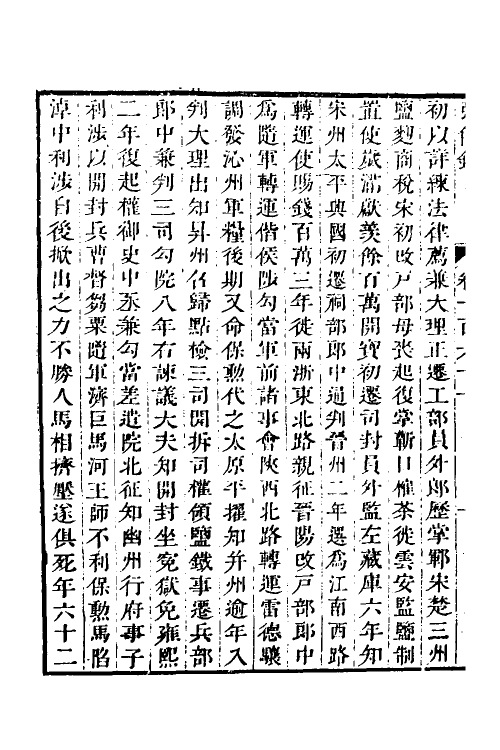 初以詳練法律薦兼大理正遷工部員外郎歷掌鄆宋楚三州
鹽麴商稅宋初改戶部母喪起復掌蘄口榷茶徙雲安監鹽制
置使歲滿獻羨餘百萬開寶初遷司封員外監左藏庫六年知
宋州太平興國初遷祠部郎中通判晉州二年選爲江南西路
轉運使賜錢百萬三年徙兩浙東北路親征晉陽改戶部郎中
爲隨軍轉運偕侯陟勾當軍前諸事會陜西北路轉運雷德驤
調發沁州軍糧後期又命保勳代之太原平擢知并州逾年入
判大理出知昇州召歸點檢三司開拆司權領鹽鐵事遷兵部
郎中兼判三司勾院八年右諫議大夫知開封坐寃獄免雍熙
二年復起權御史中丞兼勾當差遣院北征知幽州行府事子
利涉以開封兵曹督芻粟隨軍濟巨馬河王師不利保勳馬陷
淖中利涉自後掀出之力不勝人馬相擠壓遂俱死年六十二